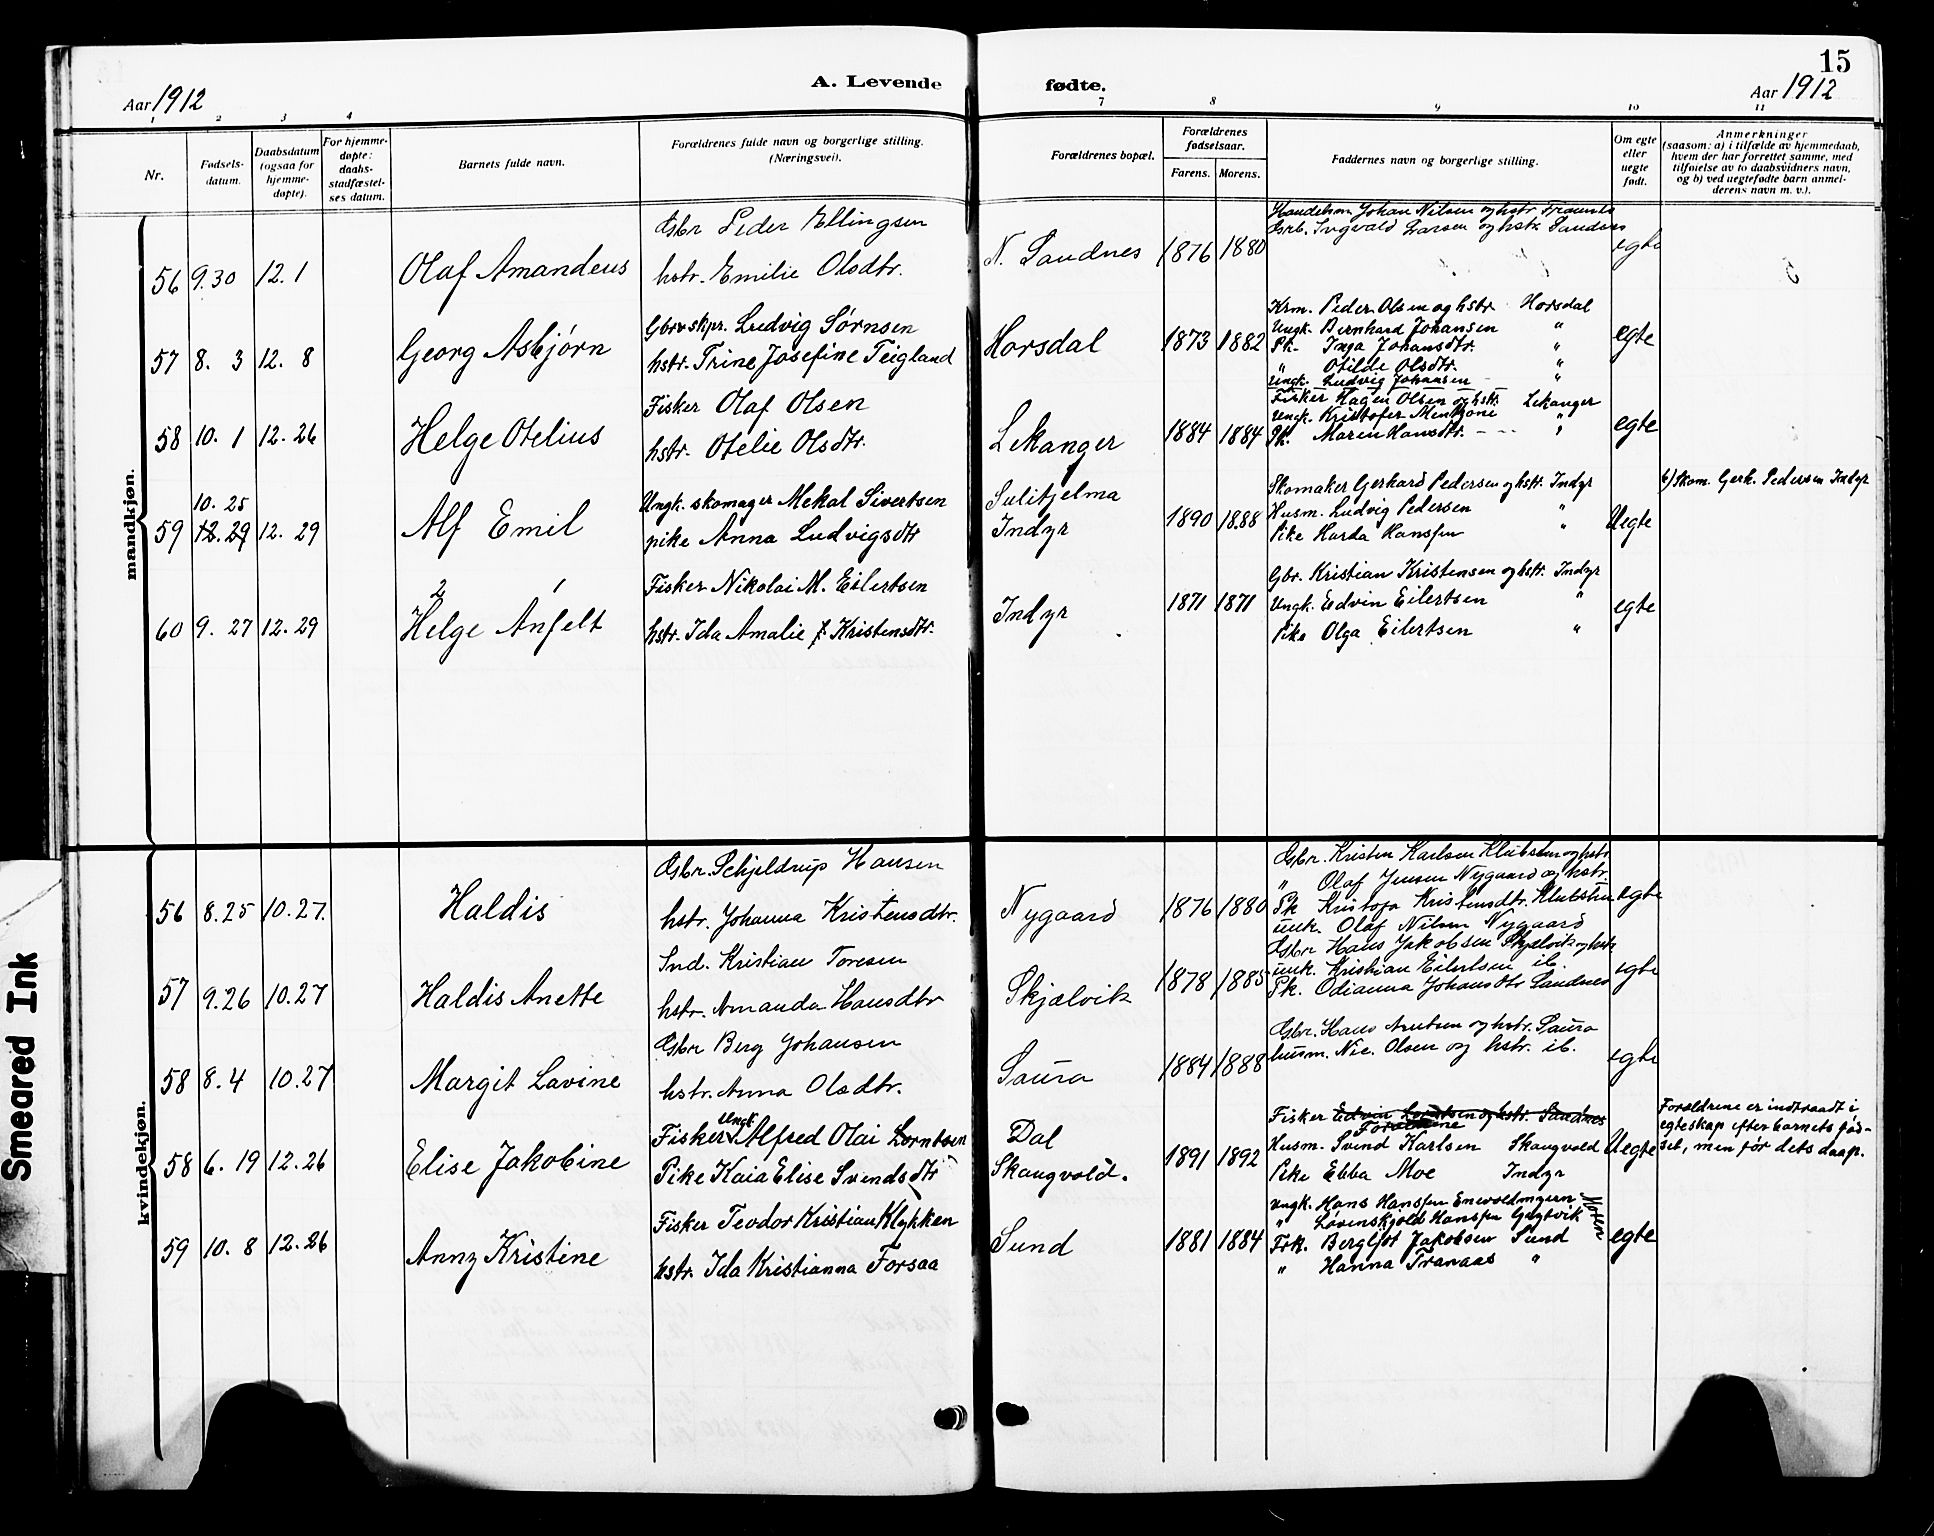 15
A. Levende fødte.
Aar 1912
Aar 1912
1 2 3 4 7 8 9 10 11
Nr.
Fødsels-
datum.
Daabsdatum
(ogsaa for
hjemme-
døpte).
For hjemme-
døpte:
daabs-
stadfæstel-
ses datum.
Barnets fulde navn.
Forældrenes fulde navn og borgerlige stilling.
(Næringsvei).
Forældrenes bopæl.
Forældrenes
fødselsaar.
Farens. Morens.
Faddernes navn og borgerlige stilling.
Om egte
eller
uegte
født.
Anmerkninger
(saasom: a) i tilfælde av hjemmedaab,
hvem der har forrettet samme, med
tilføielse av to daabsvidners navn,
og b) ved uegtefødte barn anmel-
derens navn m. v.).
mandkjøn.
56 9.30 12.1 Olaf Amandeus
Gbr Peder Ellingsen
hstr. Emilie Olsdtr.
N. Sandnes 1876 1880
Handelsm. Johan Nilsen og hstr.
Grb. Ingvald Larsen og hstr. Sandnes
egte
57 8. 3 12. 8 Georg Asbjørn
Gbr & skpr. Ludvig Sørnsen
hstr. Trine Josefine Teigland
Horsdal 1873 1882
Krm. Peder Olsen og hstr Horsdal
Ungk. Bernhard Johansen "
Pk. Inga Johansdtr. "
" Otilde Olsdtr. "
Ungk. Ludvig Johansen "
egte
58 10. 1 12. 26 Helge Otelius
Fisker Olaf Olsen
hstr. Otelie Olsdtr.
Lekanger 1884 1884
Fisker Hagen Olsen og hstr. Lekanger
Ungk. Kristofer "
Pk. Maren Hansdtr. "
egte
10. 25
59 12. 29 12. 29 Alf Emil
Ungk. skomager Mekal Sivertsen
pike Anna Ludvigsdtr
Sulitjelma
Indyr 1890 1888
Skomaker Gerhard Pedersen og hstr. Indyr
Husm. Ludvig Pedersen "
Pike Harda Hanssen "
Uegte
b) Skom. Gerh. Pedersen Indyr
2 1
60 9. 27 12. 29 Helge Anfelt
Fisker Nikolai M. Eilertsen
hstr. Ida Amalie Kristensdtr.
Indyr 1871 1871
Gbr. Kristian Kristensen og hstr. Indyr
Ungk. Edvin Eilertsen "
Pike Olga Eilertsen "
egte
kvindekjøn.
56 8.25 10.27. Haldis
Gbr. Schjeldrup Hansen
hstr. Johanna Kristensdtr.
Nygaard 1876 1880
Gbr. Kristen Karlsen og hstr.
" Olaf Jensen Nygaard og hstr.
Pk Kristofa Kristensdtr.
unk. Olaf Nilsen Nygaard
egte
57 9.26 10.27 Haldis Anette
Ind. Kristian Toresen
hstr. Amanda Hansdtr
Skjælvik 1878 1885
Gbr Hans Jakobsen Skjælvik og hstr
unk. Kristian Eilertsen ib.
Pk. Odianna Johansdtr Sandnes
egte
58 8.4 10.27 Margit Lavine
Gbr Berg Johansen
hstr. Anna Olsdtr.
Saura 1884 1888
Gbr. Hans og hstr. Saura
husm. Nic. Olsen og hstr. ib.
egte
58 6. 19 12. 26 Elise Jakobine
Ungk.
Fisker Alfred Olai Lorntsen
Pike Kaia Elise Svendsdtr
Dal
Skaugvold. 1891 1892
Fisker Edvin Lorntsen og hstr. Sandnes
Forældrene
Husm. Svind Karlsen Skaugvold
Pike Ebba Moe Indyr
Uegte
Forældrene er indtraadt i
egteskap efter barnets fød-
sel, men før dets daap.
59 10. 8 12. 26 Anny Kristine
Fisker Teodor Kristian Klykken
hstr. Ida Kristianna Forsaa
Sund 1881 1884
Ungk. Hans Hanssen
" Løvenskjold Hanssen
Frk. Bergljot Jakobsen Sund
" Hanna Tranaas "
egte
Smeared Ink